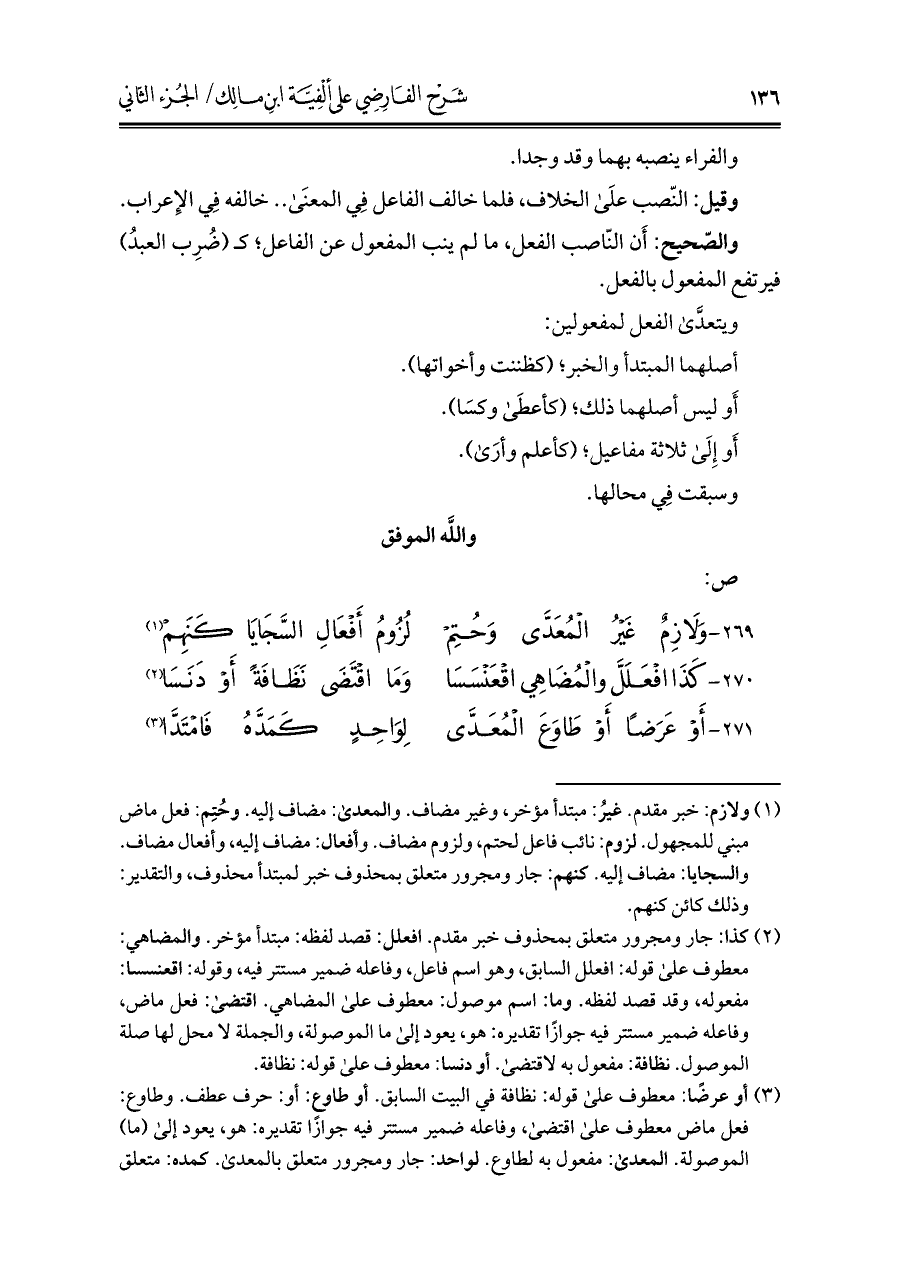 ١٣٦ شَرْح الفَارِضِي على أَلْفِيَّة ابنِ مَالِك/ الجُزء الثاني
والفراء ينصبه بهما وقد وجدا.
وقيل: النّصب علَىٰ الخلاف، فلما خالف الفاعل فِي المعنَىٰ.. خالفه فِي الإعراب.
والصّحيح: أَن النّاصب الفعل، ما لم ينب المفعول عن الفاعل؛ كـ (ضُرِب العبدُ)
فيرتفع المفعول بالفعل.
ويتعدَّىٰ الفعل لمفعولين:
أصلهما المبتدأ والخبر؛ (كظننت وأخواتها).
أَو ليس أصلهما ذلك؛ (كأعطَىٰ وكسَا).
أَو إِلَىٰ ثلاثة مفاعيل؛ (كأعلم وأرَىٰ).
وسبقت فِي محالها.
واللَّه الموفق
ص:
٢٦٩-وَلَازِمٌ غَيْرُ الْمُعَدَّى وَحُتِمْ لُزُومُ أَفْعَالِ السَّجَايَا كَنَهِمْ(١)
٢٧٠-كَذَا افْعَلَلَّ والْمُضَاهِي اقْعَنْسَسَا وَمَا اقْتَضَى نَظَافَةً أَوْ دَنَسَا(٢)
٢٧١-أَوْ عَرَضًا أَوْ طَاوَعَ الْمُعَدَّى لِوَاحِدٍ كَمَدَّهُ فَامْتَدَّا(٣)
(١) ولازم: خبر مقدم. غيرُ: مبتدأ مؤخر، وغير مضاف. والمعدىٰ: مضاف إليه. وحُتِم: فعل ماض
مبني للمجهول. لزوم: نائب فاعل لحتم، ولزوم مضاف. وأفعال: مضاف إليه، وأفعال مضاف.
والسجايا: مضاف إليه. كنهم: جار ومجرور متعلق بمحذوف خبر لمبتدأ محذوف، والتقدير:
وذلك كائن كنهم.
(٢) كذا: جار ومجرور متعلق بمحذوف خبر مقدم. افعلل: قصد لفظه: مبتدأ مؤخر. والمضاهي:
معطوف علىٰ قوله: افعلل السابق، وهو اسم فاعل، وفاعله ضمير مستتر فيه، وقوله: اقعنسسا:
مفعوله، وقد قصد لفظه. وما: اسم موصول: معطوف علىٰ المضاهي. اقتضىٰ: فعل ماض،
وفاعله ضمير مستتر فيه جوازًا تقديره: هو، يعود إلىٰ ما الموصولة، والجملة لا محل لها صلة
الموصول. نظافة: مفعول به لاقتضىٰ. أو دنسا: معطوف علىٰ قوله: نظافة.
(٣) أو عرضًا: معطوف علىٰ قوله: نظافة في البيت السابق. أو طاوع: أو: حرف عطف. وطاوع:
فعل ماض معطوف علىٰ اقتضىٰ، وفاعله ضمير مستتر فيه جوازًا تقديره: هو، يعود إلىٰ (ما)
الموصولة. المعدىٰ: مفعول به لطاوع. لواحد: جار ومجرور متعلق بالمعدىٰ. كمده: متعلق